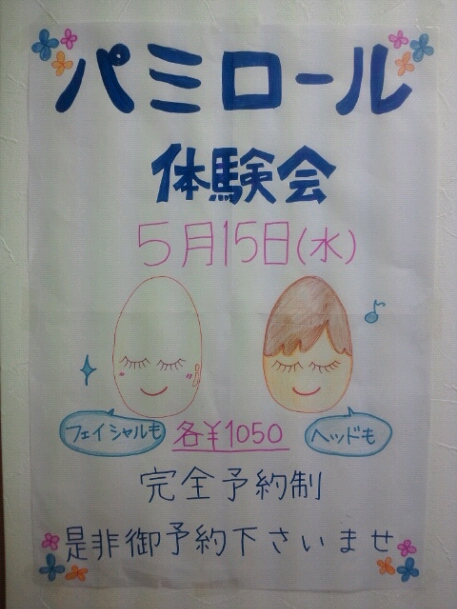 パミロール
体験会
5月15日(水)
フェイシャルも
各¥1050
ヘッドも
完全予約制
是非御予約下さいませ